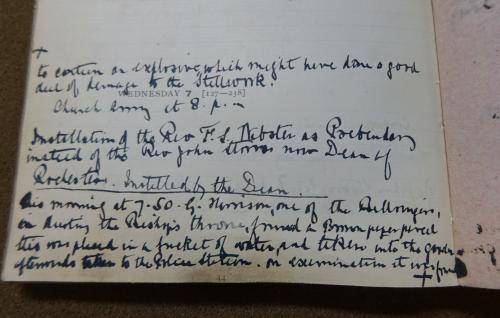 +
to contain an explosive which might have done a good
deal of damage to the Stallwork.
WEDNESDAY 7 [127—238]
Church Army at 8. p. m
Installation of the Rev F. S. Webster as Prebendary
instead of the Rev John Storrs now Dean of
Rochester. Installed by the Dean
This morning at 7.50. G. Harrison, one of the Bellringers,
in dusting the Bishop's throne, found a Brown paper parcel
this was placed in a bucket of water, and taken into the garden
afterwards taken to the Police Station. on examination it was found
+
44